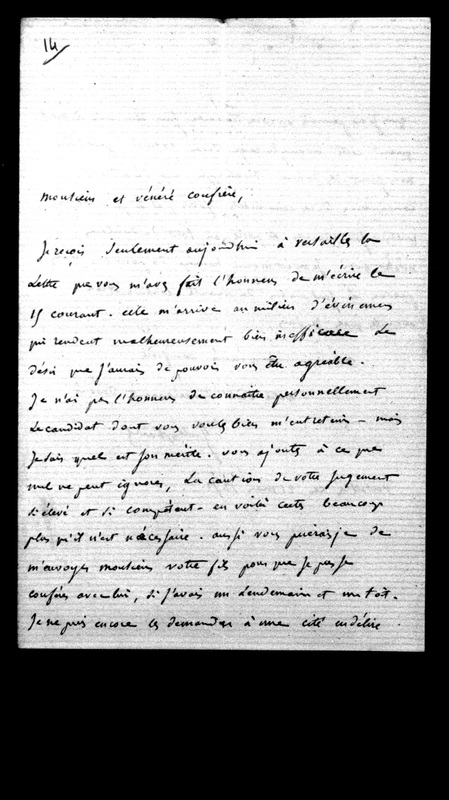 14
Monsieur et vénéré confrère,
Je reçois seulement aujourdhui à versailles la
Lettre que vous m'avez fait l'honneur de m'écrire le
15 courant. elle m'arrive au milieu d'événemens
qui rendent malheureusement bien inefficace Le
désir que j'aurais de pouvoir vous être agréable.
Je n'ai pas l'honneur de connaitre personnellement
Le candidat dont vous voulez bien m'entretenir - mais
Je sais quel est son mérite. vous ajoutez à ce que
nul ne peut ignorer, La caution de votre Jugement
si élevé et si compétent - en voilà certes beaucoup
plus qu'il n'est nécessaire. aussi vous prierais je de
m'envoyer monsieur votre fils pour que Je pusse
conférer avec lui, si j'avais un Lendemain et un toit.
Je ne puis encore les demander à une cité en délire